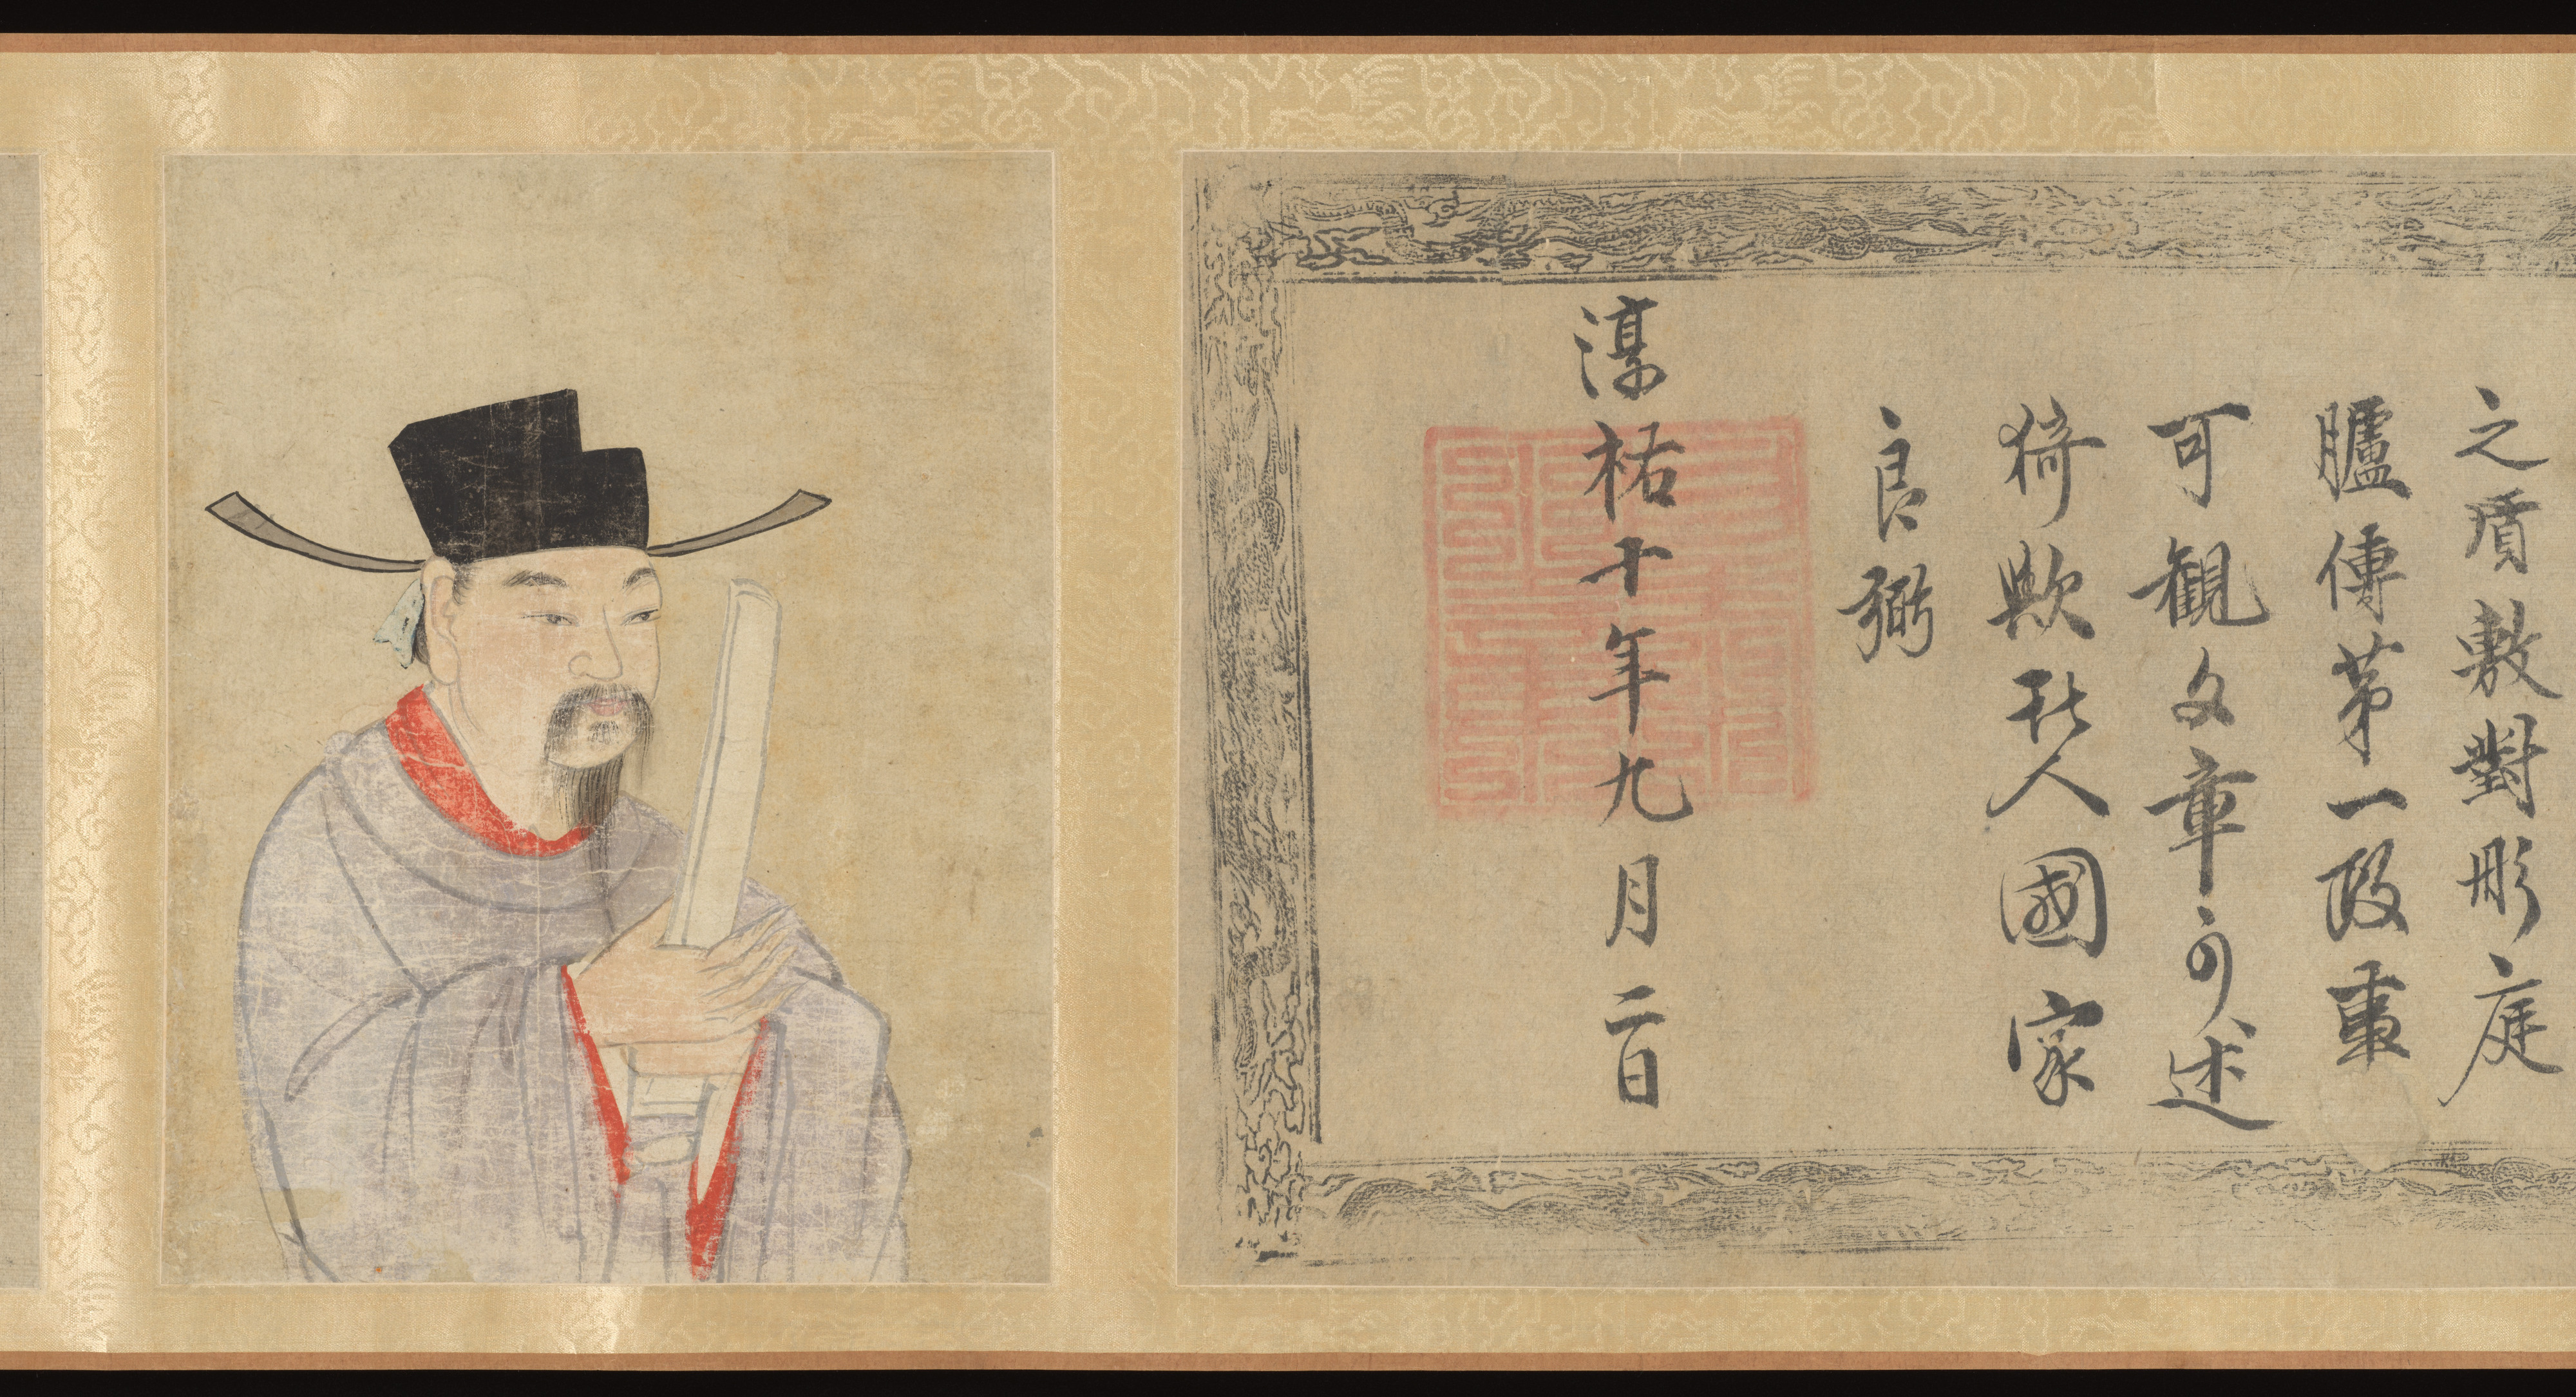 之盾敷對彤庭
臚傳苐一段重
可觀文章可述
猗歟哲人國家
良弼
淳祐十年九月二日